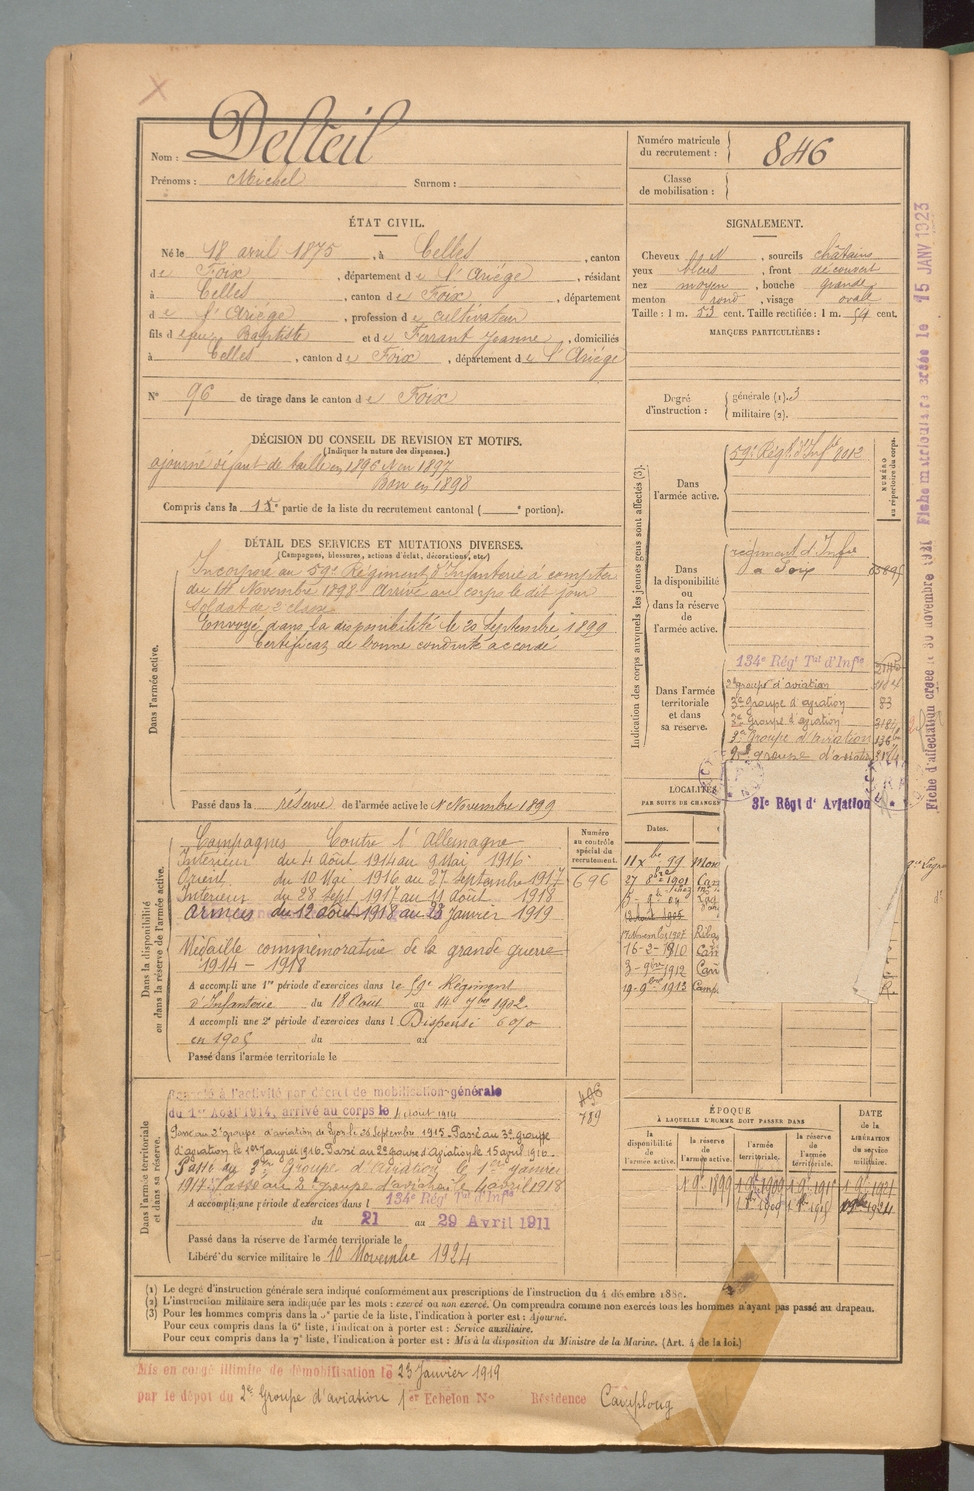 Nom : Delteil
Prénoms : Michel Surnom :
Numéro matricule du recrutement : 846
Classe de mobilisation :
ÉTAT CIVIL.
Né le 18 avril 1875, à Celles, canton
de Foix, département de l'Ariége, résidant
à Celles, canton de Foix, département
de l'Ariége, profession de cultivateur
fils de feu Baptiste et de Ferrant Jeanne, domiciliés
à Celles, canton de Foix, département de l'Ariége
N° 96 de tirage dans le canton de Foix
SIGNALEMENT.
Cheveux N, sourcils châtains
yeux bleus, front découvert
nez moyen, bouche grande
menton rond, visage ovale
Taille : 1 m. 53 cent. Taille rectifiée : 1 m. 54 cent.
MARQUES PARTICULIÈRES :
Degré d'instruction : générale (1). 3
militaire (2).
DÉCISION DU CONSEIL DE REVISION ET MOTIFS.
(Indiquer la nature des dispenses.)
ajourné défaut de taille en 1896 & en 1897
Bon en 1898
Compris dans la partie de la liste du recrutement cantonal ( portion).
DÉTAIL DES SERVICES ET MUTATIONS DIVERSES.
(Campagnes, blessures, actions d'éclat, décorations, etc.)
Dans l'armée active.
Incorporé au 59e Régiment d'Infanterie à compter
du 14 Novembre 1898. Arrivé au corps le dit jour
Soldat de 2e classe
Envoyé dans la disponibilité le 20 septembre 1899
Certificat de bonne conduite accordé
Passé dans la réserve de l'armée active le 1er Novembre 1899
Indication des corps auxquels les jeunes gens sont affectés (3).
NUMÉRO au répertoire du corps.
Dans l'armée active.
59e Régt. d'Infie
Dans la disponibilité ou dans la réserve de l'armée active.
régiment d'Infie
a Foix
Dans l'armée territoriale et dans sa réserve.
134e Régt Tal d'Infie
2e groupe d'aviation
3e Groupe d'aviation 83
2e Groupe d'aviation
3e Groupe d'aviation
2e groupe d'aviation
31e Régt d'Aviation
Fiche d'affectation créée le 30 novembre 1921 Fiche matriculaire créée le 15 JANV 1923
LOCALITÉS
PAR SUITE DE CHANGEM
Dates.
27 8bre 1901
17 Novembre 1907 Ribas
16-2-1910
3-9bre 1912
19-9bre 1913 Camp
Dans la disponibilité ou dans la réserve de l'armée active.
Numéro au contrôle spécial du recrutement.
696
Campagnes Contre l'Allemagne
Intérieur du 4 août 1914 au 9 Mai 1916
Orient du 10 Mai 1916 au 27 septembre 1917
Intérieur du 28 sept 1917 au 11 août 1918
Armées du 12 août 1918 au 23 janvier 1919
Médaille commémorative de la grande guerre
1914 - 1918
A accompli une 1re période d'exercices dans le 59e Régiment
d'Infanterie du 18 Août au 14 7bre 1902.
A accompli une 2e période d'exercices dans l Dispensé 6 %
en 1905 du au
Passé dans l'armée territoriale le
Dans l'armée territoriale et dans sa réserve.
Rappelé à l'activité par décret de mobilisation générale
du 1er Août 1914, arrivé au corps le 4 août 1914
789
Passé au 2e groupe d'aviation de Lyon le 26 septembre 1915. Passé au 3e groupe
d'aviation le 1er janvier 1916. Passé au 2e groupe d'aviation le 15 avril 1916.
Passé au 3e Groupe d'aviation le 1er janvier
1917. Passé au 2e groupe d'aviation le 4 avril 1918
A accompli une période d'exercices dans l 134e Régt Tal d'Infie
du 21 au 29 Avril 1911
Passé dans la réserve de l'armée territoriale le
Libéré du service militaire le 10 Novembre 1924
ÉPOQUE
À LAQUELLE L'HOMME DOIT PASSER DANS
la disponibilité de l'armée active.
la réserve de l'armée active.
l'armée territoriale.
la réserve de l'armée territoriale.
DATE de la LIBÉRATION du service militaire.
(1) Le degré d'instruction générale sera indiqué conformément aux prescriptions de l'instruction du 4 décembre 1889.
(2) L'instruction militaire sera indiquée par les mots : exercé ou non exercé. On comprendra comme non exercés tous les hommes n'ayant pas passé au drapeau.
(3) Pour les hommes compris dans la 5e partie de la liste, l'indication à porter est : Ajourné.
Pour ceux compris dans la 6e liste, l'indication à porter est : Service auxiliaire.
Pour ceux compris dans la 7e liste, l'indication à porter est : Mis à la disposition du Ministre de la Marine. (Art. 4 de la loi.)
Mis en congé illimité de démobilisation le 23 Janvier 1919
par le dépôt du 2e Groupe d'aviation 1er Echelon No Résidence Camplong